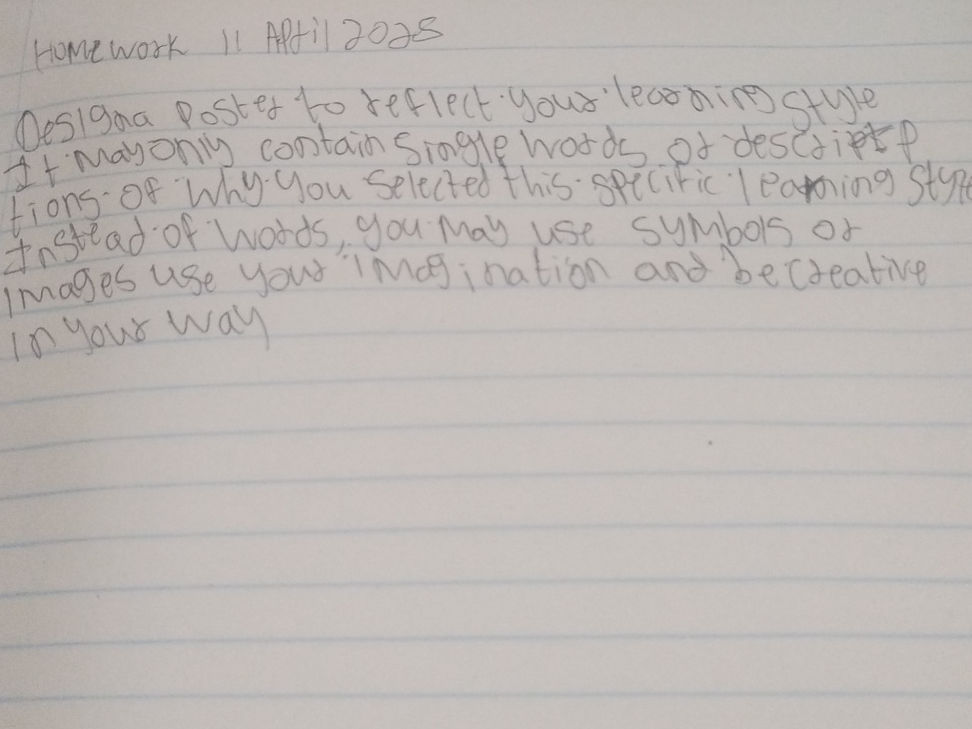 Homework 11 April 2025
Design a poster to reflect your learning style
It may only contain single words or descrip
tions of why you selected this specific learning style
Instead of words, you may use symbols or
images use your imagination and be creative
in your way